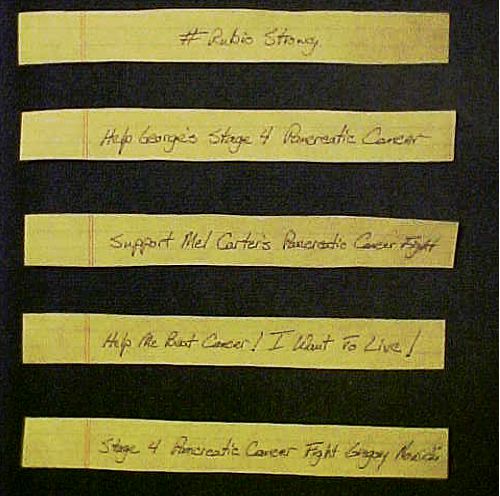 # Rubio Strong
Help George's Stage 4 Pancreatic Cancer
Support Mel Carter's Pancreatic Cancer Fight
Help Me Beat Cancer! I Want To Live!
Stage 4 Pancreatic Cancer Fight Gregory